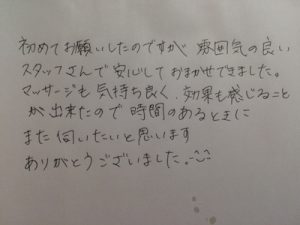 初めてお願いしたのですが 雰囲気の良い
スタッフさんで安心しておまかせできました。
マッサージも気持ち良く、効果も感じること
が出来たので時間のあるときに
また伺いたいと思います
ありがとうございました。